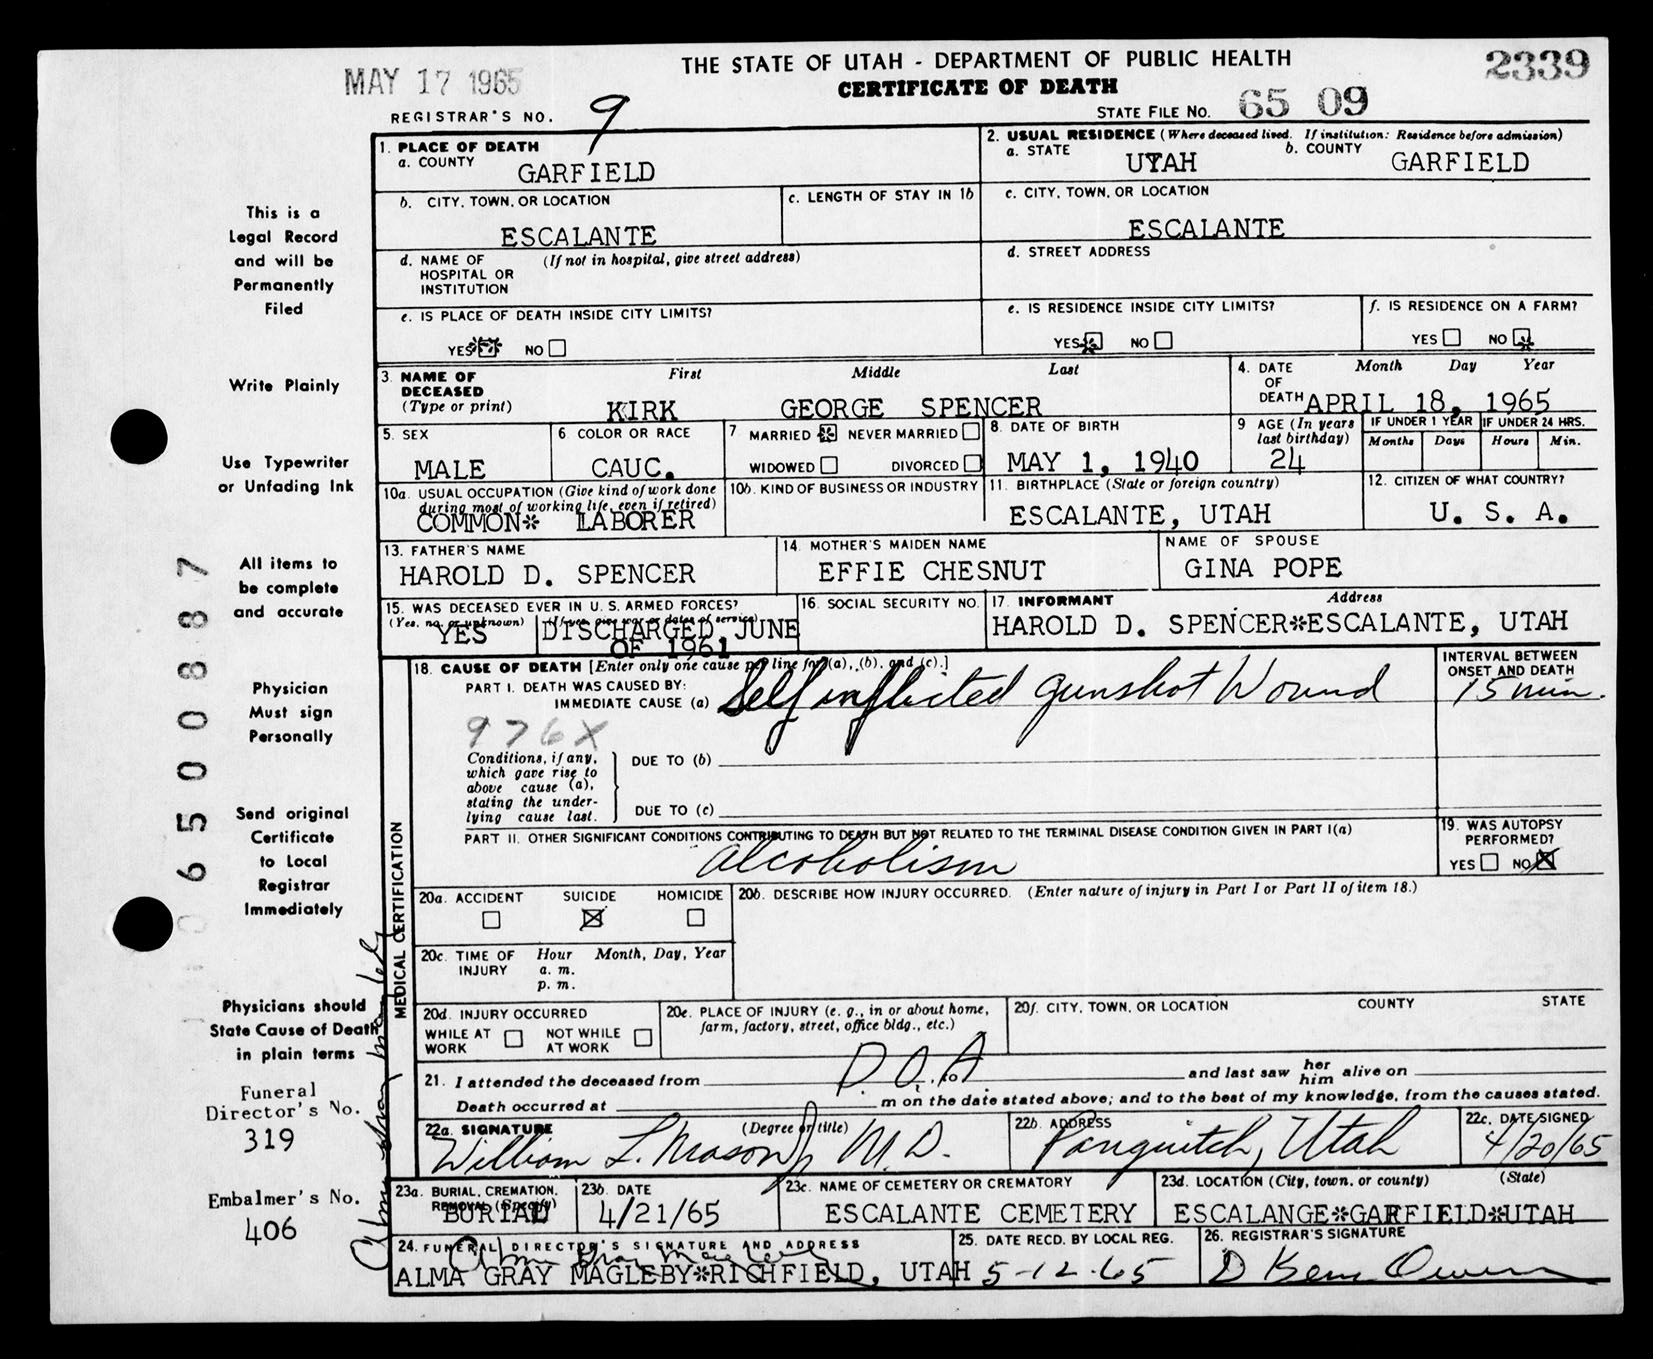 THE STATE OF UTAH - DEPARTMENT OF PUBLIC HEALTH
2339
MAY 17 1965
CERTIFICATE OF DEATH
REGISTRAR'S NO. 9
STATE FILE NO. 65 09
1. PLACE OF DEATH
a. COUNTY
GARFIELD
2. USUAL RESIDENCE (Where deceased lived. If institution: Residence before admission)
a. STATE
UTAH
b. COUNTY
GARFIELD
b. CITY, TOWN, OR LOCATION
ESCALANTE
c. LENGTH OF STAY IN 1b
c. CITY, TOWN, OR LOCATION
ESCALANTE
d. NAME OF (If not in hospital, give street address)
HOSPITAL OR
INSTITUTION
d. STREET ADDRESS
e. IS PLACE OF DEATH INSIDE CITY LIMITS?
YES NO
e. IS RESIDENCE INSIDE CITY LIMITS?
YES NO
f. IS RESIDENCE ON A FARM?
YES NO
3. NAME OF
DECEASED
(Type or print)
First Middle Last
KIRK GEORGE SPENCER
4. DATE
OF
DEATH
Month Day Year
APRIL 18, 1965
5. SEX
MALE
6 COLOR OR RACE
CAUC.
7 MARRIED NEVER MARRIED
WIDOWED DIVORCED
8. DATE OF BIRTH
MAY 1, 1940
9 AGE (In years
last birthday)
24
IF UNDER 1 YEAR
Months Days
IF UNDER 24 HRS.
Hours Min.
10a. USUAL OCCUPATION (Give kind of work done
during most of working life, even if retired)
COMMON* LABORER
10b. KIND OF BUSINESS OR INDUSTRY
11. BIRTHPLACE (State or foreign country)
ESCALANTE, UTAH
12. CITIZEN OF WHAT COUNTRY?
U. S. A.
13. FATHER'S NAME
HAROLD D. SPENCER
14. MOTHER'S MAIDEN NAME
EFFIE CHESNUT
NAME OF SPOUSE
GINA POPE
15. WAS DECEASED EVER IN U. S. ARMED FORCES?
(Yes, no, or unknown) (If yes, give war or dates of service)
YES DISCHARGED JUNE
OF 1961
16. SOCIAL SECURITY NO.
17. INFORMANT Address
HAROLD D. SPENCER*ESCALANTE, UTAH
MEDICAL CERTIFICATION
18. CAUSE OF DEATH [Enter only one cause per line for (a), (b), and (c).]
PART I. DEATH WAS CAUSED BY:
IMMEDIATE CAUSE (a) Self inflicted gunshot Wound
INTERVAL BETWEEN
ONSET AND DEATH
15 min.
976X
Conditions, if any,
which gave rise to
above cause (a),
stating the under-
lying cause last.
DUE TO (b)
DUE TO (c)
PART II. OTHER SIGNIFICANT CONDITIONS CONTRIBUTING TO DEATH BUT NOT RELATED TO THE TERMINAL DISEASE CONDITION GIVEN IN PART I(a)
alcoholism
19. WAS AUTOPSY
PERFORMED?
YES NO
20a. ACCIDENT SUICIDE HOMICIDE
20b. DESCRIBE HOW INJURY OCCURRED. (Enter nature of injury in Part I or Part II of item 18.)
20c. TIME OF Hour Month, Day, Year
INJURY a. m.
p. m.
20d. INJURY OCCURRED
WHILE AT NOT WHILE
WORK AT WORK
20e. PLACE OF INJURY (e. g., in or about home,
farm, factory, street, office bldg., etc.)
20f. CITY, TOWN, OR LOCATION COUNTY STATE
21. I attended the deceased from D.O.A to and last saw her him alive on
Death occurred at m on the date stated above; and to the best of my knowledge, from the causes stated.
22a. SIGNATURE (Degree or title)
William L. Mason Jr M.D.
22b. ADDRESS
Panguitch, Utah
22c. DATE SIGNED
4/20/65
23a. BURIAL, CREMATION,
REMOVAL (Specify)
BURIAL
23b. DATE
4/21/65
23c. NAME OF CEMETERY OR CREMATORY
ESCALANTE CEMETERY
23d. LOCATION (City, town, or county) (State)
ESCALANGE*GARFIELD*UTAH
24. FUNERAL DIRECTOR'S SIGNATURE AND ADDRESS
Alma Gray Magleby
ALMA GRAY MAGLEBY*RICHFIELD, UTAH
25. DATE RECD. BY LOCAL REG.
5-12-65
26. REGISTRAR'S SIGNATURE
This is a
Legal Record
and will be
Permanently
Filed
Write Plainly
Use Typewriter
or Unfading Ink
All items to
be complete
and accurate
Physician
Must sign
Personally
Send original
Certificate
to Local
Registrar
Immediately
Physicians should
State Cause of Death
in plain terms
Funeral
Director's No.
319
Embalmer's No.
406
Alma Gray Magleby
0 6 5 0 0 8 8 7